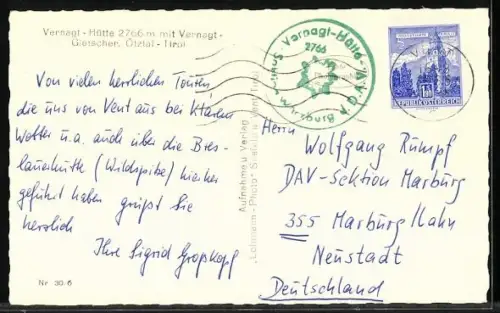 Vernagt - Hütte 2766 m mit Vernagt -
Gletscher, Ötztal - Tirol
Von vielen herrlichen Touren,
die uns von Vent aus bei klarem
Wetter u.a. auch über die Bres-
lauerhütte (Wildspitze) hierher
geführt haben grüßt Sie
herzlich
Ihre Sigrid Gropkopf
Nr. 30-6
Aufnahme u. Verlag
"Lohmann-Photo"
Vernagt-Hütte
2766
Würzburg
D.A.V.
REPUBLIK ÖSTERREICH
Herrn
Wolfgang Rumpf
DAV-Sektion Marburg
355 Marburg/Lahn
Neustadt
Deutschland